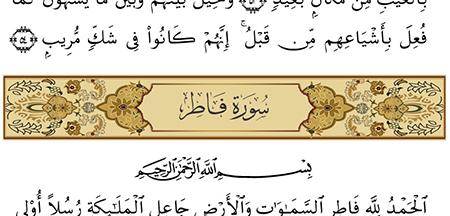 بِٱلْغَيْبِ مِن مَّكَانٍۭ بَعِيدٍ ﴿٥٣﴾ وَحِيلَ بَيْنَهُمْ وَبَيْنَ مَا يَشْتَهُونَ كَمَا
فُعِلَ بِأَشْيَاعِهِم مِّن قَبْلُ ۚ إِنَّهُمْ كَانُوا۟ فِى شَكٍّ مُّرِيبٍۭ ﴿٥٤﴾
سُورَةُ فَاطِرٍ
بِسْمِ ٱللَّهِ ٱلرَّحْمَٰنِ ٱلرَّحِيمِ
ٱلْحَمْدُ لِلَّهِ فَاطِرِ ٱلسَّمَٰوَٰتِ وَٱلْأَرْضِ جَاعِلِ ٱلْمَلَٰٓئِكَةِ رُسُلًا أُو۟لِىٓ